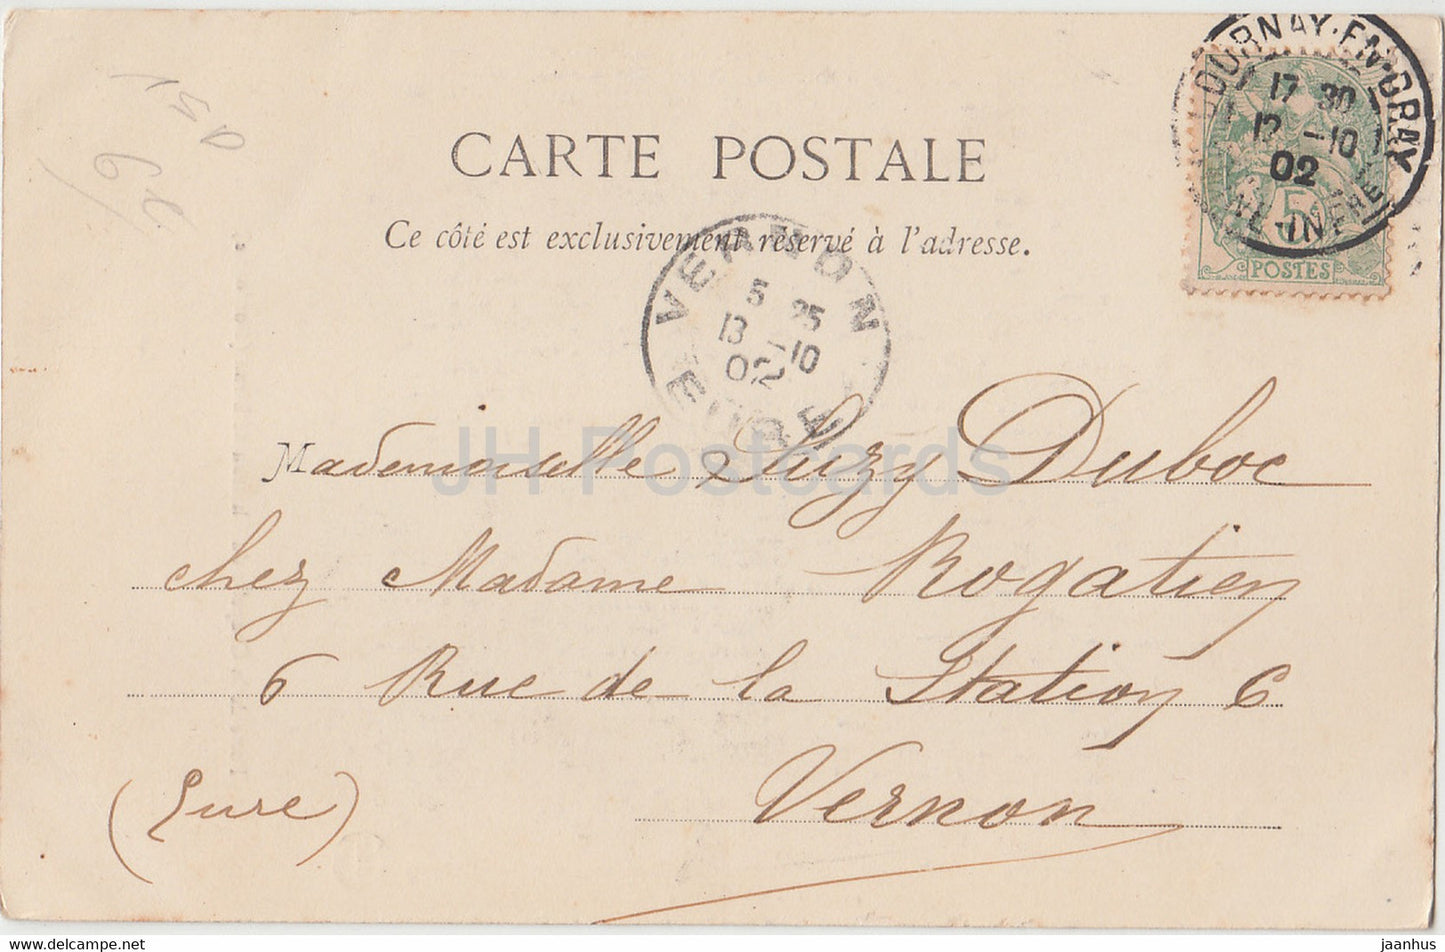 CARTE POSTALE
Ce côté est exclusivement réservé à l'adresse.
OURNAY-EN-BRAY
17 30
12 -10
02
NE-INFRE
5
POSTES
VERNON
5 25
13 -10
02
EURE
Mademoiselle Suzy Duboc
chez Madame Rogatien
6 Rue de la Station 6
Vernon
(Eure)
JH Postcards
www.hippostcard.com
jaanhus